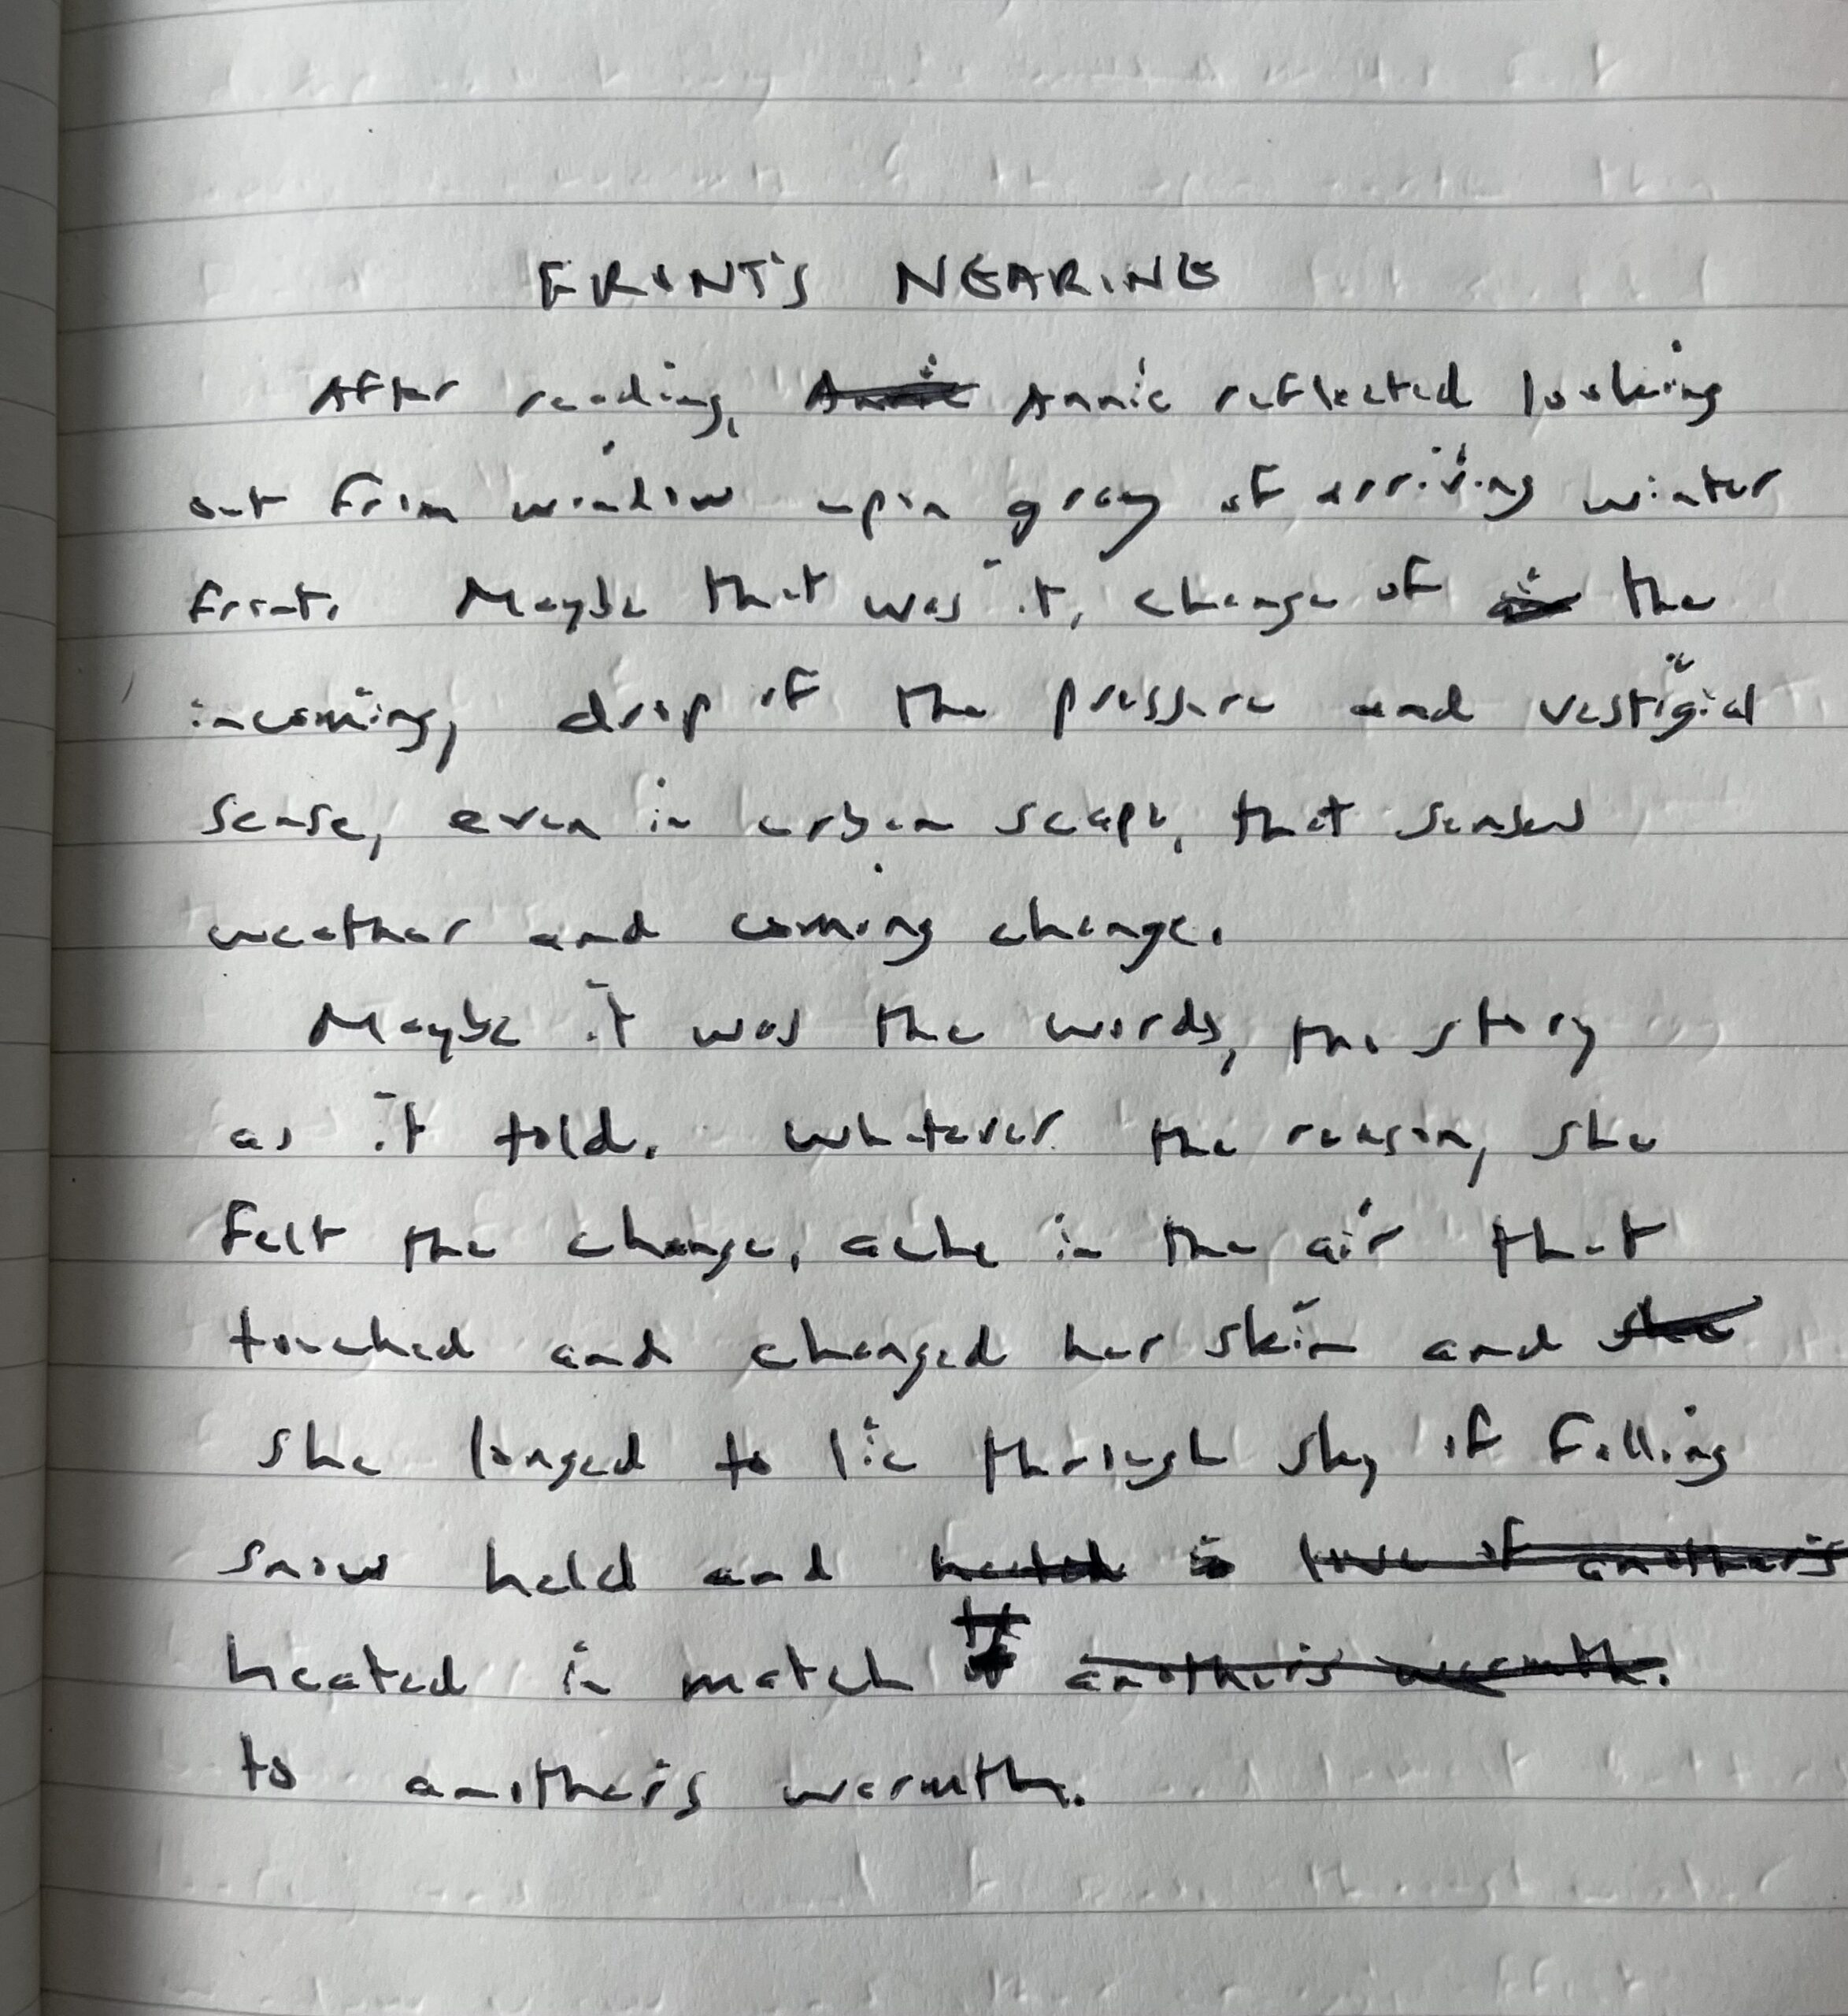 FRONT'S NEARING
After reading, Annie reflected looking
out from window upon gray of arriving winter
front. Maybe that was it, change of the
incoming, drop of the pressure and vestigial
sense, even in urban scape, that sensed
weather and coming change.
Maybe it was the words, the story
as it told. Whatever the reason, she
felt the change, ache in the air that
touched and changed her skin and she
she longed to lie through sky of falling
snow held and heated love of another's
heated in match another's warmth.
to another's warmth.